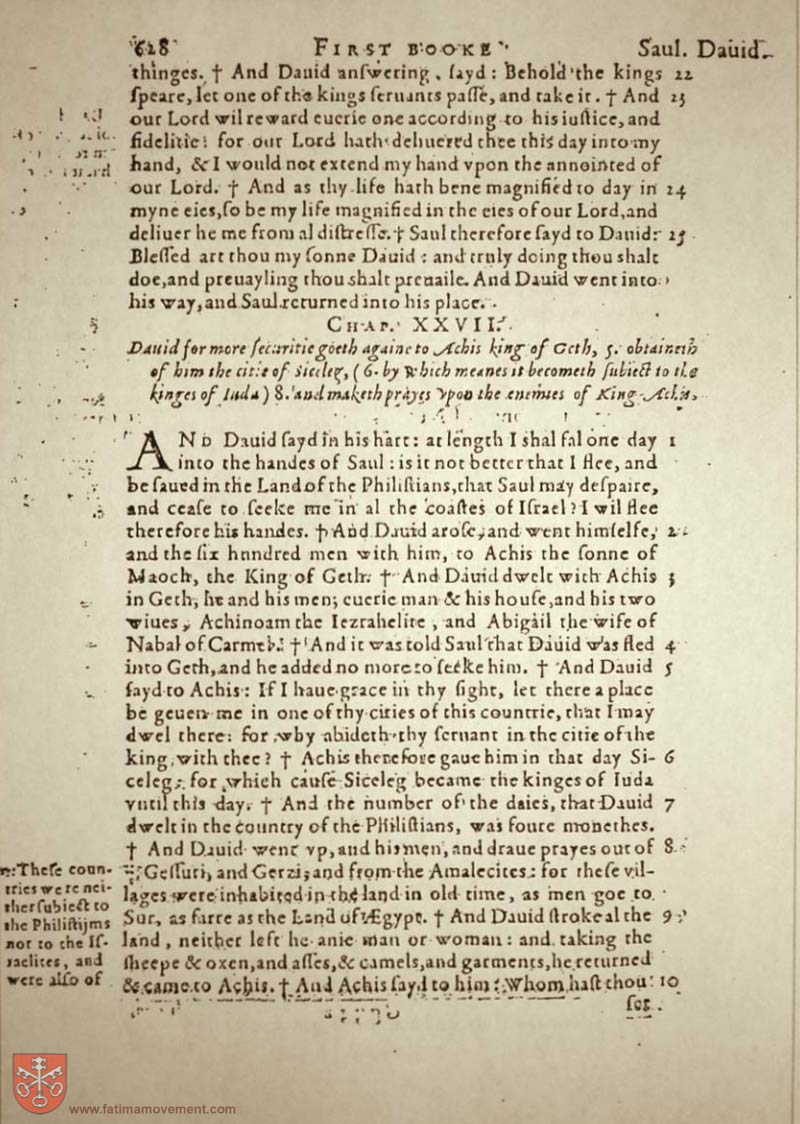 628 FIRST BOOKE Saul. Dauid.
thinges. † And Dauid anſwering, ſayd: Behold the kings 22
ſpeare, let one of the kings ſeruants paſſe, and take it. † And 23
our Lord wil reward euerie one according to his iuſtice, and
fidelitie: for our Lord hath deliuered thee this day into my
hand, & I would not extend my hand vpon the annointed of
our Lord. † And as thy life hath bene magnified to day in 24
myne eies, ſo be my life magnified in the eies of our Lord, and
deliuer he me from al diſtreſſe. † Saul therefore ſayd to Dauid: 25
Bleſſed art thou my ſonne Dauid: and truly doing thou shalt
doe, and preuayling thou shalt preuaile. And Dauid went into
his way, and Saul returned into his place.
CHAP. XXVII.
Dauid for more ſecuritie goeth againe to Achis king of Geth, 5. obtaineth
of him the citie of Siceleg, (6. by which meanes it becometh ſubiect to the
kinges of Iuda) 8. and maketh prayes vpon the enemies of King Achis.
AND Dauid ſayd in his hart: at length I shal fal one day 1
into the handes of Saul: is it not better that I flee, and
be ſaued in the Land of the Philiſtians, that Saul may deſpaire,
and ceaſe to ſeeke me in al the coaſtes of Iſrael? I wil flee
therefore his handes. † And Dauid aroſe, and went himſelfe, 2
and the ſix hundred men with him, to Achis the ſonne of
Maoch, the King of Geth. † And Dauid dwelt with Achis 3
in Geth, he and his men; euerie man & his houſe, and his two
wiues, Achinoam the Iezrahelite, and Abigail the wife of
Nabal of Carmel. † And it was told Saul that Dauid was fled 4
into Geth, and he added no more to ſeeke him. † And Dauid 5
ſayd to Achis: If I haue grace in thy ſight, let there a place
be geuen me in one of thy cities of this countrie, that I may
dwel there: for why abideth thy ſeruant in the citie of the
king with thee? † Achis therefore gaue him in that day Si- 6
celeg: for which cauſe Siceleg became the kinges of Iuda
vntil this day. † And the number of the daies, that Dauid 7
dwelt in the country of the Philiſtians, was foure monethes.
† And Dauid went vp, and his men, and draue prayes out of 8
Geſſuri, and Gerzi, and from the Amalecites: for theſe vil-
lages were inhabited in the land in old time, as men goe to
Sur, as farre as the Land of Ægypt. † And Dauid ſtroke al the 9
land, neither left he anie man or woman: and taking the
ſheepe & oxen, and aſſes, & camels, and garments, he returned
& came to Achis. † And Achis ſayd to him: Whom haſt thou 10
ſet
Theſe coun-
tries were nei-
ther ſubiect to
the Philiſtijms
nor to the Iſ-
raelites, and
were alſo of
www.fatimamovement.com